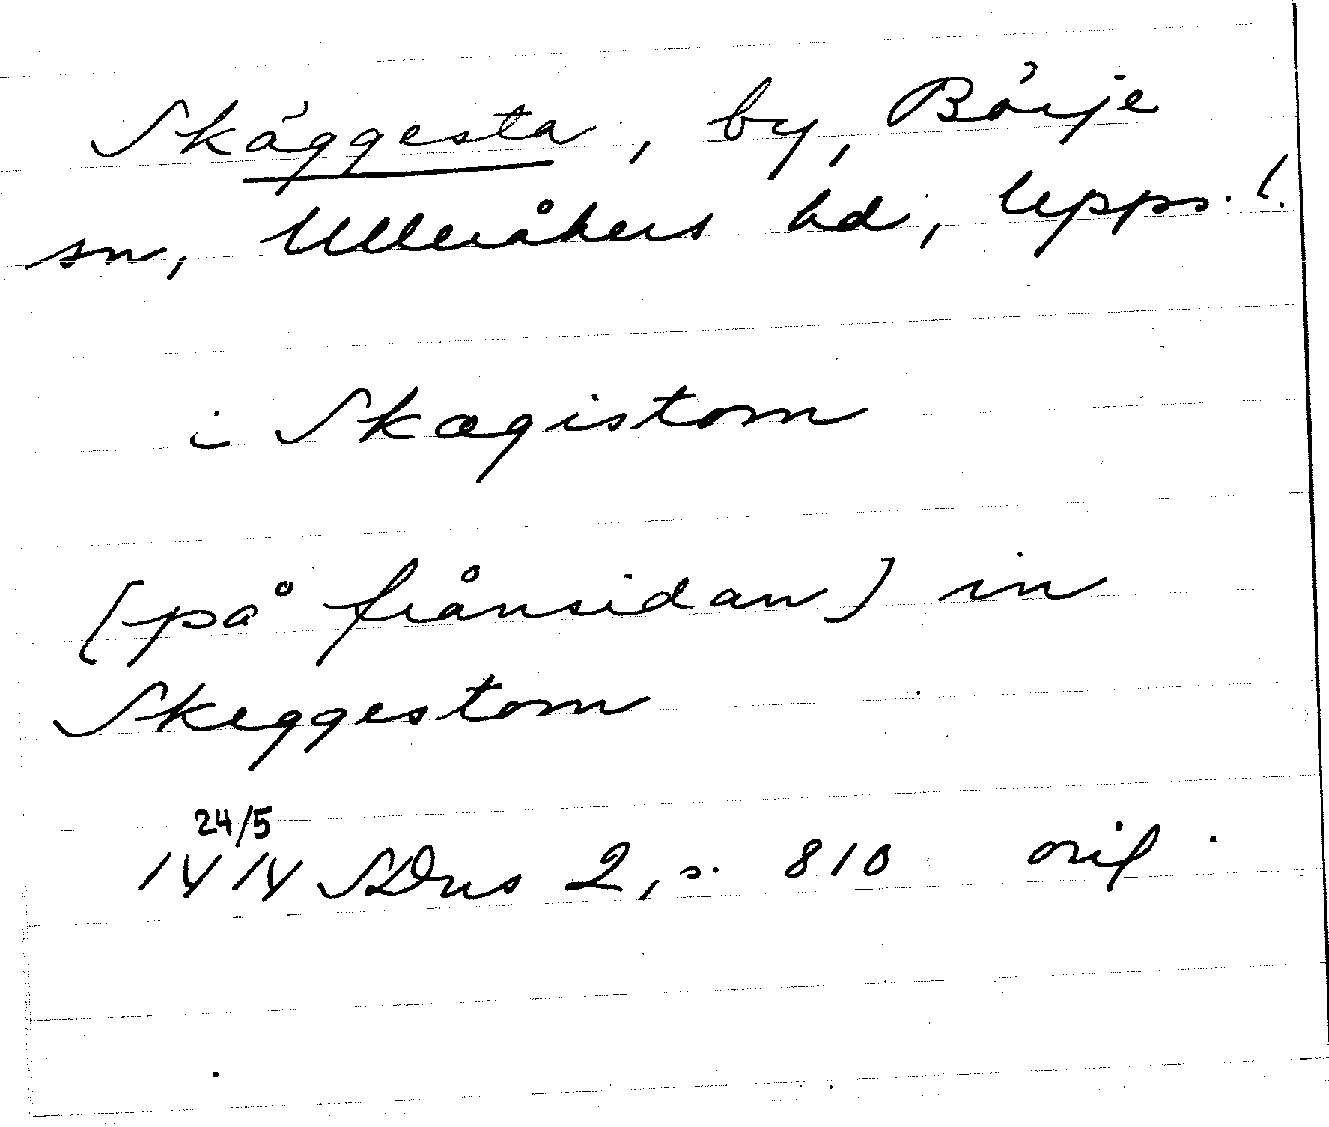 Skäggesta, by, Börje
sn, Ulleråkers hd, Upps. l.
i Skægistom
[på frånsidan] in
Skeggestom
24/5
1414 SDns 2, s. 810 orig.